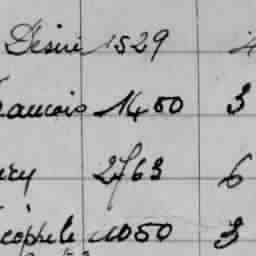 Désiré 1529
rancois 1450 3
2763 6
éophile 1050 3